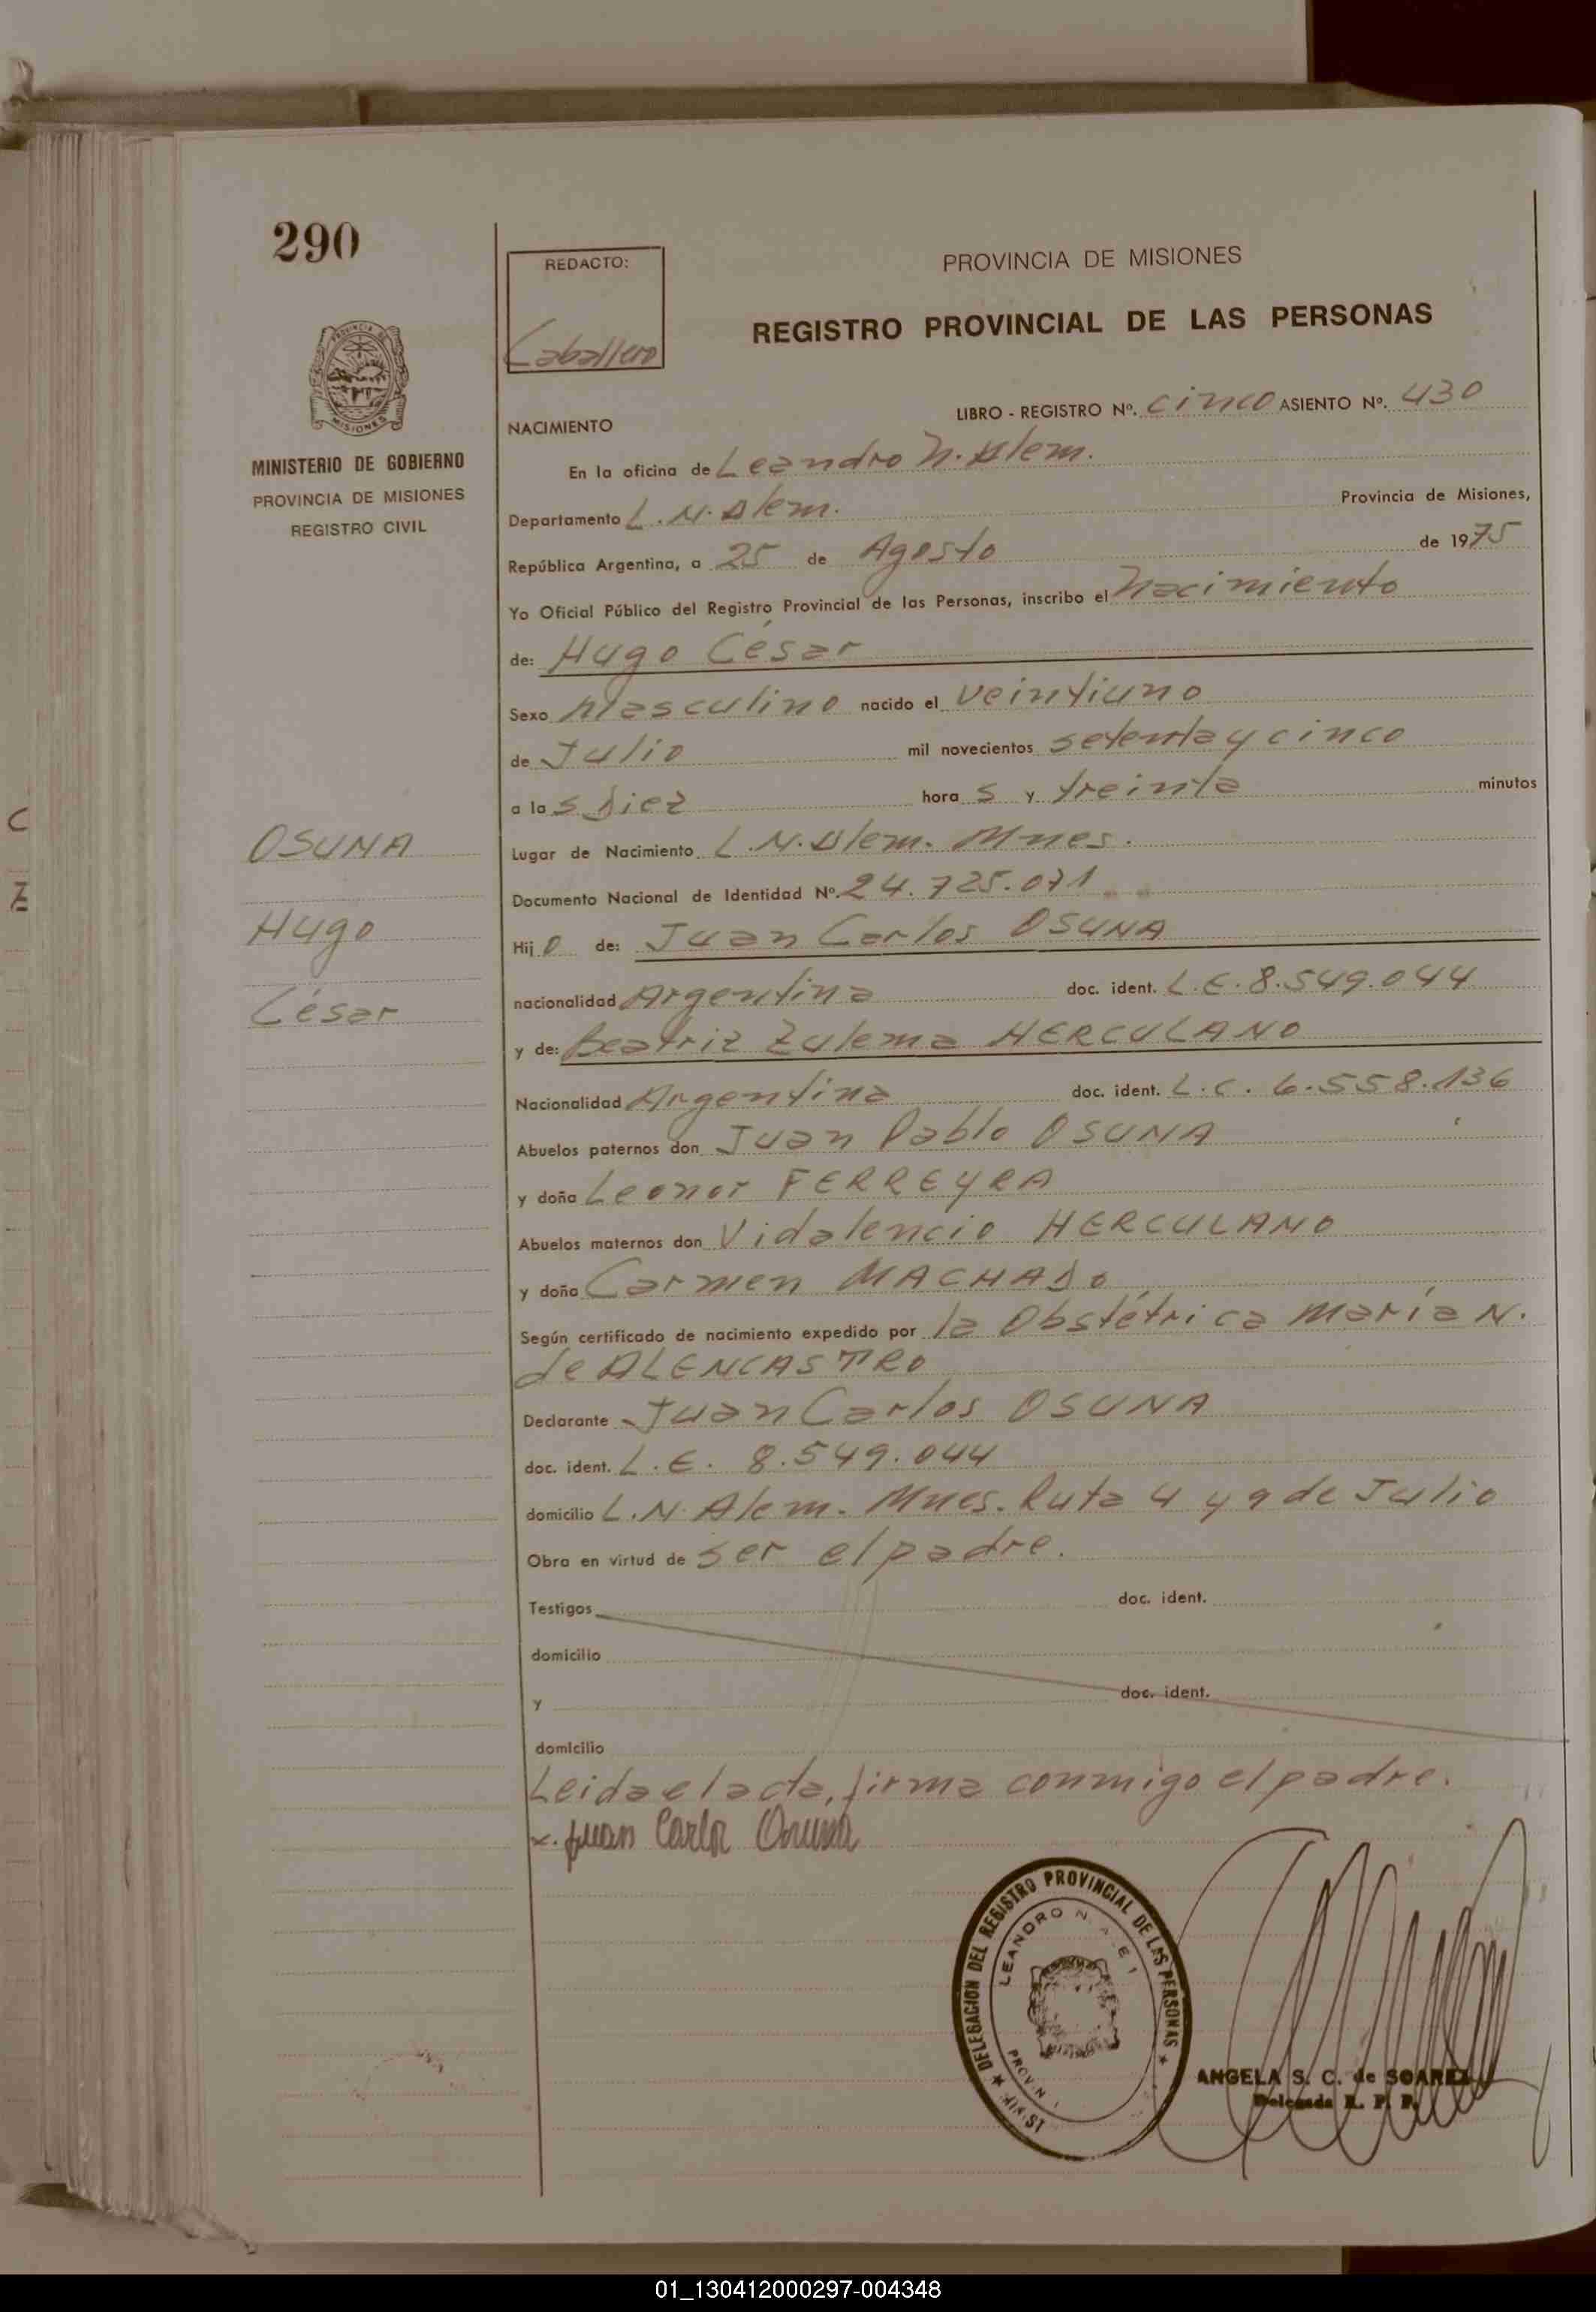 290
REDACTO:
Caballero
PROVINCIA DE MISIONES
REGISTRO PROVINCIAL DE LAS PERSONAS
PROVINCIA DE
MISIONES
MINISTERIO DE GOBIERNO
PROVINCIA DE MISIONES
REGISTRO CIVIL
LIBRO - REGISTRO Nº. cinco ASIENTO Nº. 430
NACIMIENTO
En la oficina de Leandro N. Alem.
Departamento L. N. Alem. Provincia de Misiones,
República Argentina, a 25 de Agosto de 1975
Yo Oficial Público del Registro Provincial de las Personas, inscribo el nacimiento
de: Hugo César
Sexo Masculino nacido el veintiuno
de Julio mil novecientos setenta y cinco
a las Diez horas y treinta minutos
Lugar de Nacimiento L. N. Alem. Mnes.
Documento Nacional de Identidad Nº. 24.725.071
Hijo de: Juan Carlos OSUNA
nacionalidad Argentina doc. ident. L.E. 8.549.044
y de: Beatriz Zulema HERCULANO
Nacionalidad Argentina doc. ident. L.C. 6.558.136
Abuelos paternos don Juan Pablo OSUNA
y doña Leonor FERREYRA
Abuelos maternos don Vidalencio HERCULANO
y doña Carmen MACHADO
Según certificado de nacimiento expedido por la Obstétrica María N.
de ALENCASTRO
Declarante Juan Carlos OSUNA
doc. ident. L.E. 8.549.044
domicilio L.N. Alem. Mnes. Ruta 4 y 9 de Julio
Obra en virtud de ser el padre.
Testigos doc. ident.
domicilio
y doc. ident.
domicilio
Leida el acta, firma conmigo el padre.
x. Juan Carlos Osuna
OSUNA
Hugo
César
DELEGACION DEL REGISTRO PROVINCIAL DE LAS PERSONAS
LEANDRO N.
ANGELA S. C. de SOAREZ
Delegada R. P. P.
01_130412000297-004348